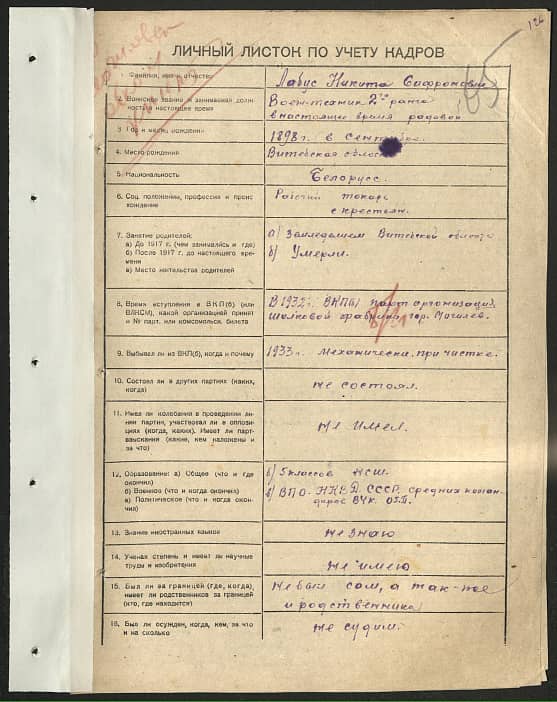 126
ЛИЧНЫЙ ЛИСТОК ПО УЧЕТУ КАДРОВ
65
Фамилия, имя и отчество
Лабус Никита Сафронович
2. Воинское звание и занимаемая долж
ность в настоящее время
Воентехник 2го ранга
в настоящий время рядовой
3. Год и месяц рождения
1898 г. в Сентябре.
4. Место рождения
Витебская област
5. Национальность
Белорусс.
6. Соц. положение, профессия и проис
хождение
Рабочий токарь
с крестьян.
7. Занятие родителей:
а) До 1917 г. (чем занимались и где)
б) После 1917 г. до настоящего вре-
мени
в) Место жительства родителей
а) Земледелием Витебской области
б) Умерли.
8. Время вступления в ВКП(б) (или
ВЛКСМ), какой организацией принят
и № парт. или комсомольск. билета
В 1932 г. ВКПб парт организаций
шелковой фабрики гор. Могилев.
9. Выбывал ли из ВКП(б), когда и почему
1933 г. механически при чистке.
10. Состоял ли в других партиях (каких,
когда)
не состоял.
11. Имел ли колебания в проведении ли-
нии партии, участвовал ли в оппози-
циях (когда, каких). Имеет ли парт-
взыскания (какие, кем наложены и
за что)
не имел.
12. Образование: а) Общее (что и где
окончил)
б) Военное (что и когда окончил)
в) Политическое (что и когда окон-
чил)
5 классов НСШ.
ВПО НКВД СССР средних коман-
13. Знание иностранных языков
не знаю
14. Ученая степень и имеет ли научные
труды и изобретения
не имею
15. Был ли за границей (где, когда),
имеет ли родственников за границей
(кто, где находится)
не был сам, а так-же
и родственники
16. Был ли осужден, когда, кем, за что
и на сколько
не судим.